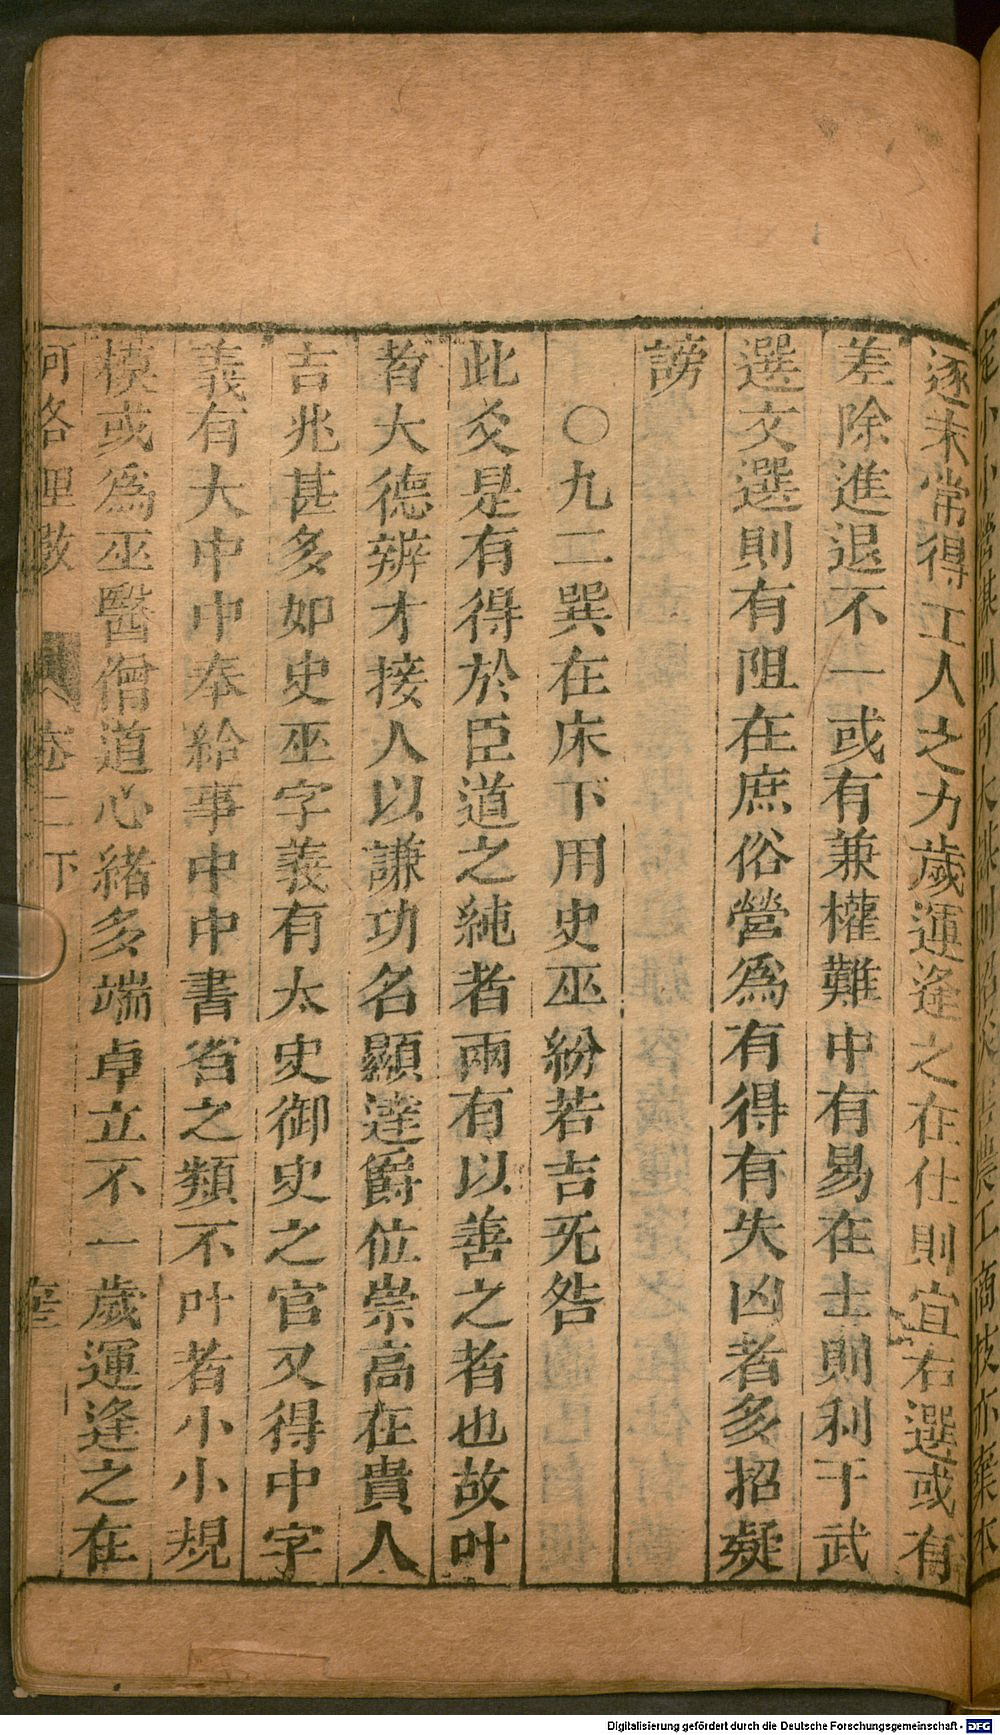 逐末常得工人之力歲運逢之在仕則宜右選或有
差除進退不一或有兼權難中有易在士則利于武
選文選則有阻在庶俗營為有得有失凶者多招疑
謗
○九二巽在床下用史巫紛若吉旡咎
此爻是有得於臣道之純者兩有以善之者也故叶
者大德辨才接人以謙功名顯達爵位崇高在貴人
吉兆甚多如史巫字義有太史御史之官又得中字
義有大中中奉給事中中書省之類不叶者小小規
模或為巫醫僧道心緒多端卓立不一歲運逢之在
河洛理数 卷二下
Digitalisierung gefördert durch die Deutsche Forschungsgemeinschaft - DFG